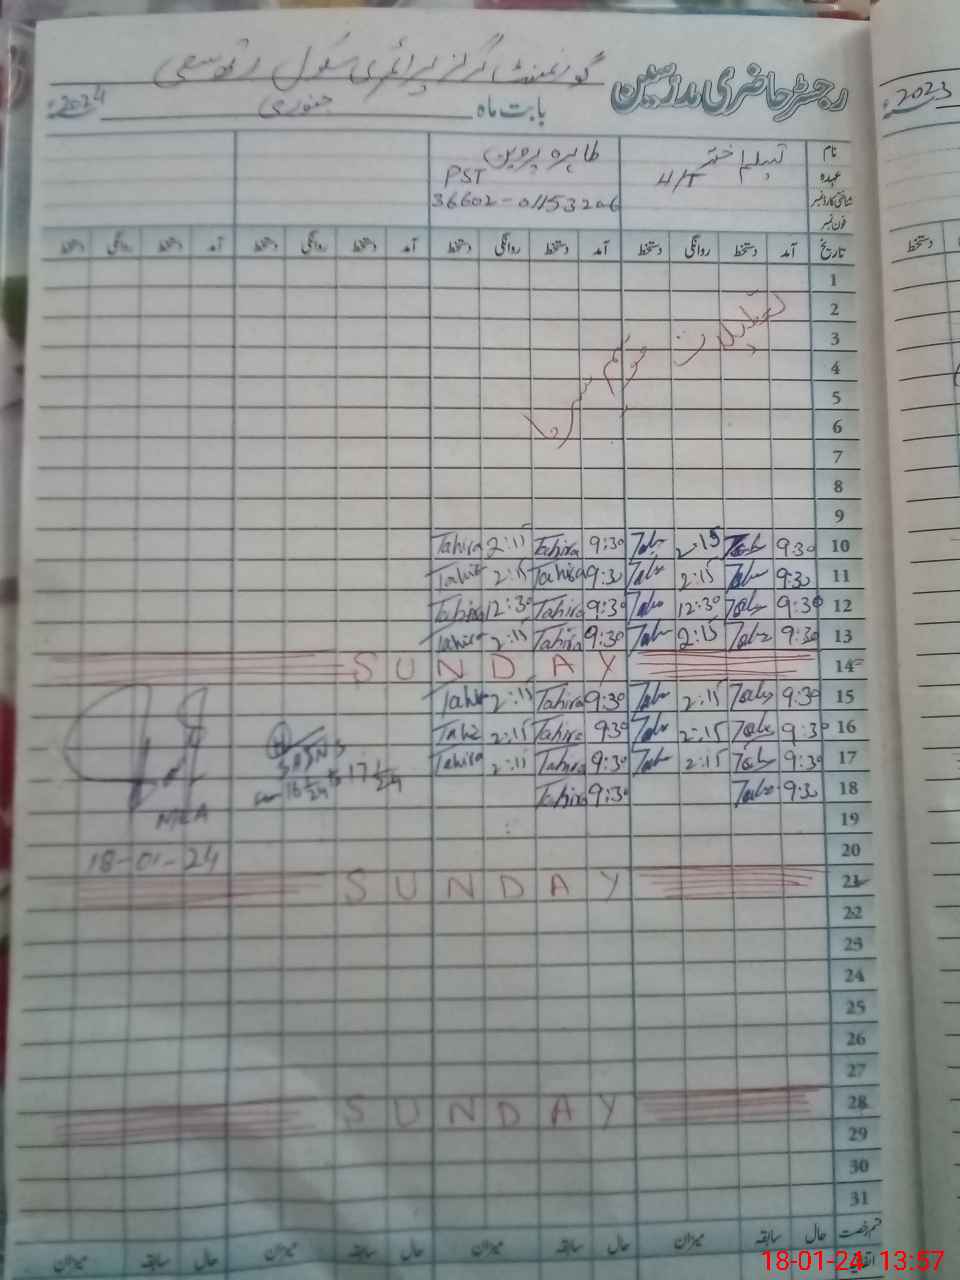 رجسٹر حاضری مدرسین گورنمنٹ گرلز پرائمری سکول
بابت ماہ جنوری 2024ء
2023
نام تسلیم اختر طاہرہ پروین
عہدہ H/T PST
شناختی کارڈ نمبر 36602-01153206
فون نمبر
تاریخ آمد دستخط روانگی دستخط آمد دستخط روانگی دستخط آمد دستخط روانگی دستخط آمد دستخط روانگی دستخط
دستخط
1
2
3
4
5
6
7
8
9
تعطیلات موسم سرما
10 9:30 2:15 9:30 Tahira 2:15 Tahira
11 9:30 2:15 9:30 Tahira 2:15 Tahira
12 9:30 12:30 9:30 Tahira 12:30 Tahira
13 9:30 2:15 9:30 Tahira 2:15 Tahira
14 SUNDAY
15 9:30 2:15 9:30 Tahira 2:15 Tahira
16 9:30 2:15 9:30 Tahira 2:15 Tahira
17 9:30 2:15 9:30 Tahira 2:15 Tahira
18 9:30 9:30 Tahira
19
20
18-01-24
21 SUNDAY
22
23
24
25
26
27
28 SUNDAY
29
30
31
قسم رخصت حال سابقہ میزان حال سابقہ میزان حال سابقہ میزان حال سابقہ میزان
18-01-24 13:57